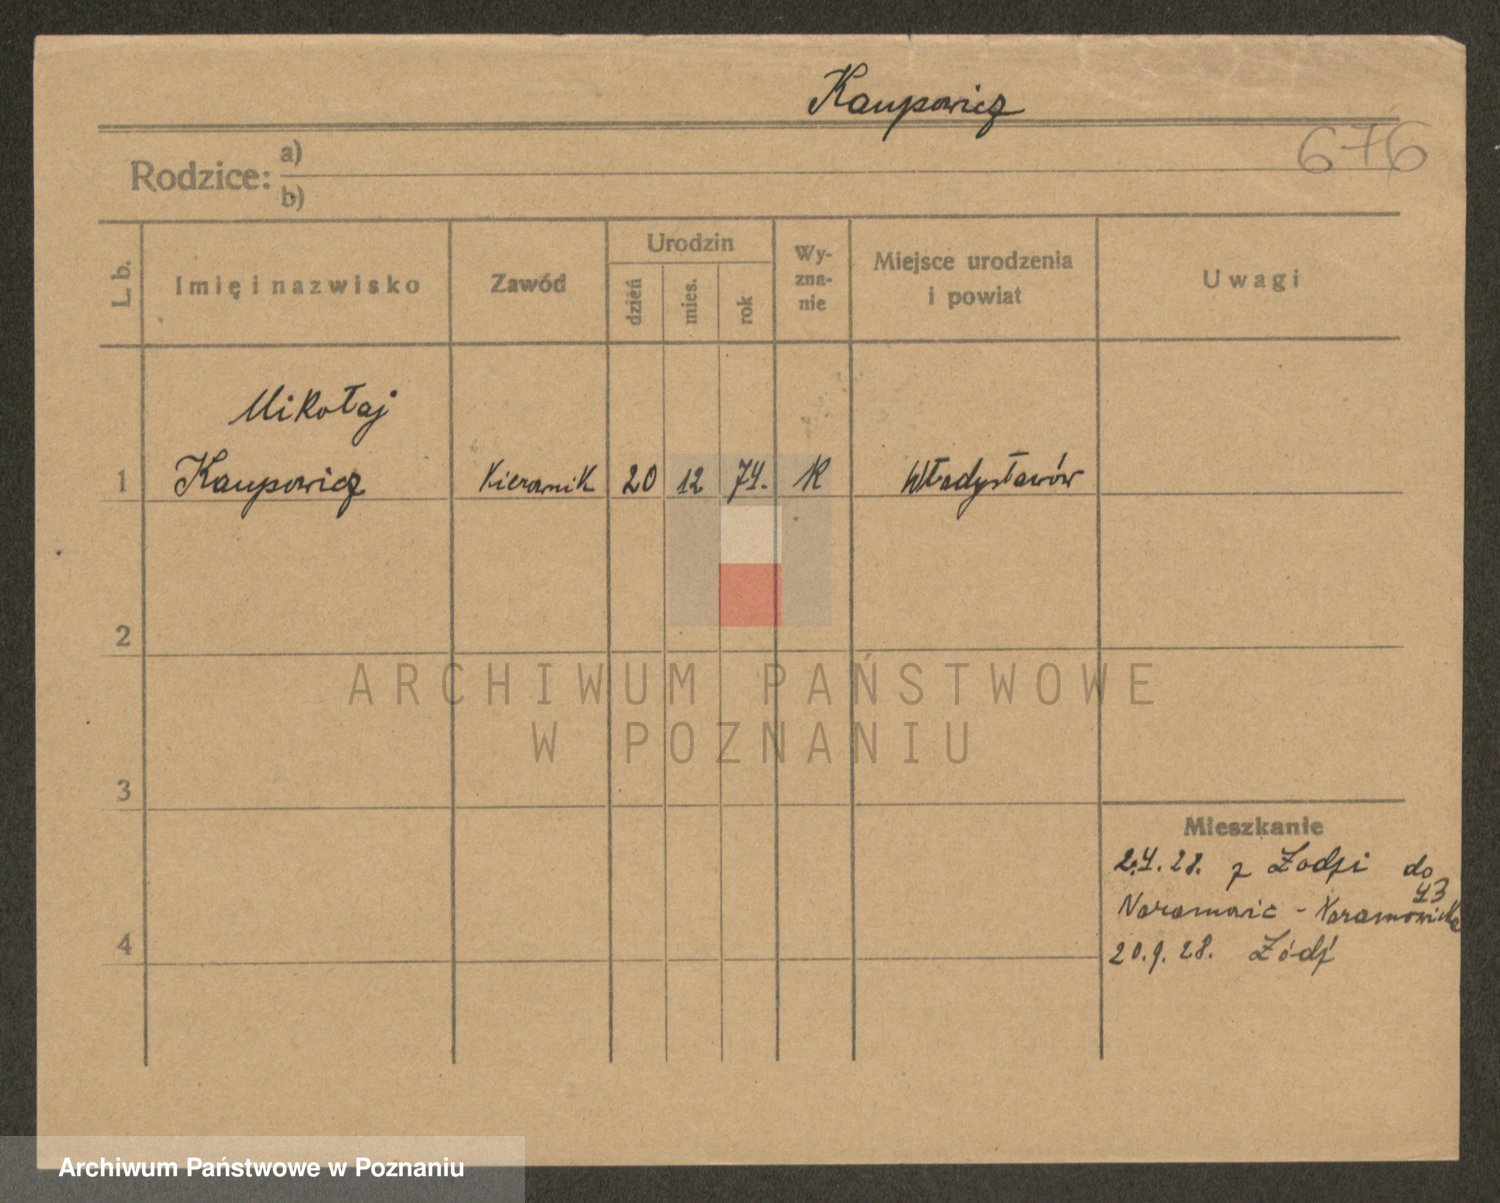 Kaupowicz
676
Rodzice: a)
b)
L. b.
Imię i nazwisko
Zawód
Urodzin
dzień
mies.
rok
Wy-
zna-
nie
Miejsce urodzenia
i powiat
Uwagi
Mikołaj
1 Kaupowicz Kierownik 20 12 74. K Władysławów
2
ARCHIWUM PAŃSTWOWE
W POZNANIU
3
Mieszkanie
2.4.28. z Łodzi do
Naramowic - Naramowicka 43
4
20.9.28. Łódź
Archiwum Państwowe w Poznaniu